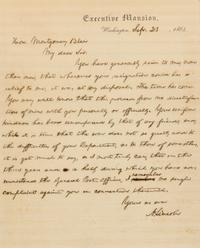 Executive Mansion,
Washington, Sep. 23, 1864.
Hon. Montgomery Blair
My dear Sir.
You have generously said to me more
than once, that whenever your resignation could be a
relief to me, it was at my disposal. The time has come.
You very well know that this proceeds from no dissatisfac-
tion of mine with you personally or officially. Your uniform
kindness has been unsurpassed by that of any friend; and,
while it is true that the war does not so greatly add to
the difficulties of your Department, as to those of some
others, it is yet much to say, as I most truly can, that in the
three years and a half during which you have admi-
nistered the General Post-Office, I remember no single
complaint against you in connection therewith.
Yours as ever
A. Lincoln